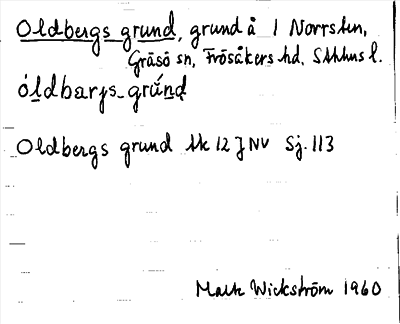 Oldbergs grund, grund å 1 Norrsten,
Gräsö sn, Frösåkers hd, Sthlms l.
óldbarjs-grúnd
Oldbergs grund sk 12 J NV Sj. 113
Wickström 1960